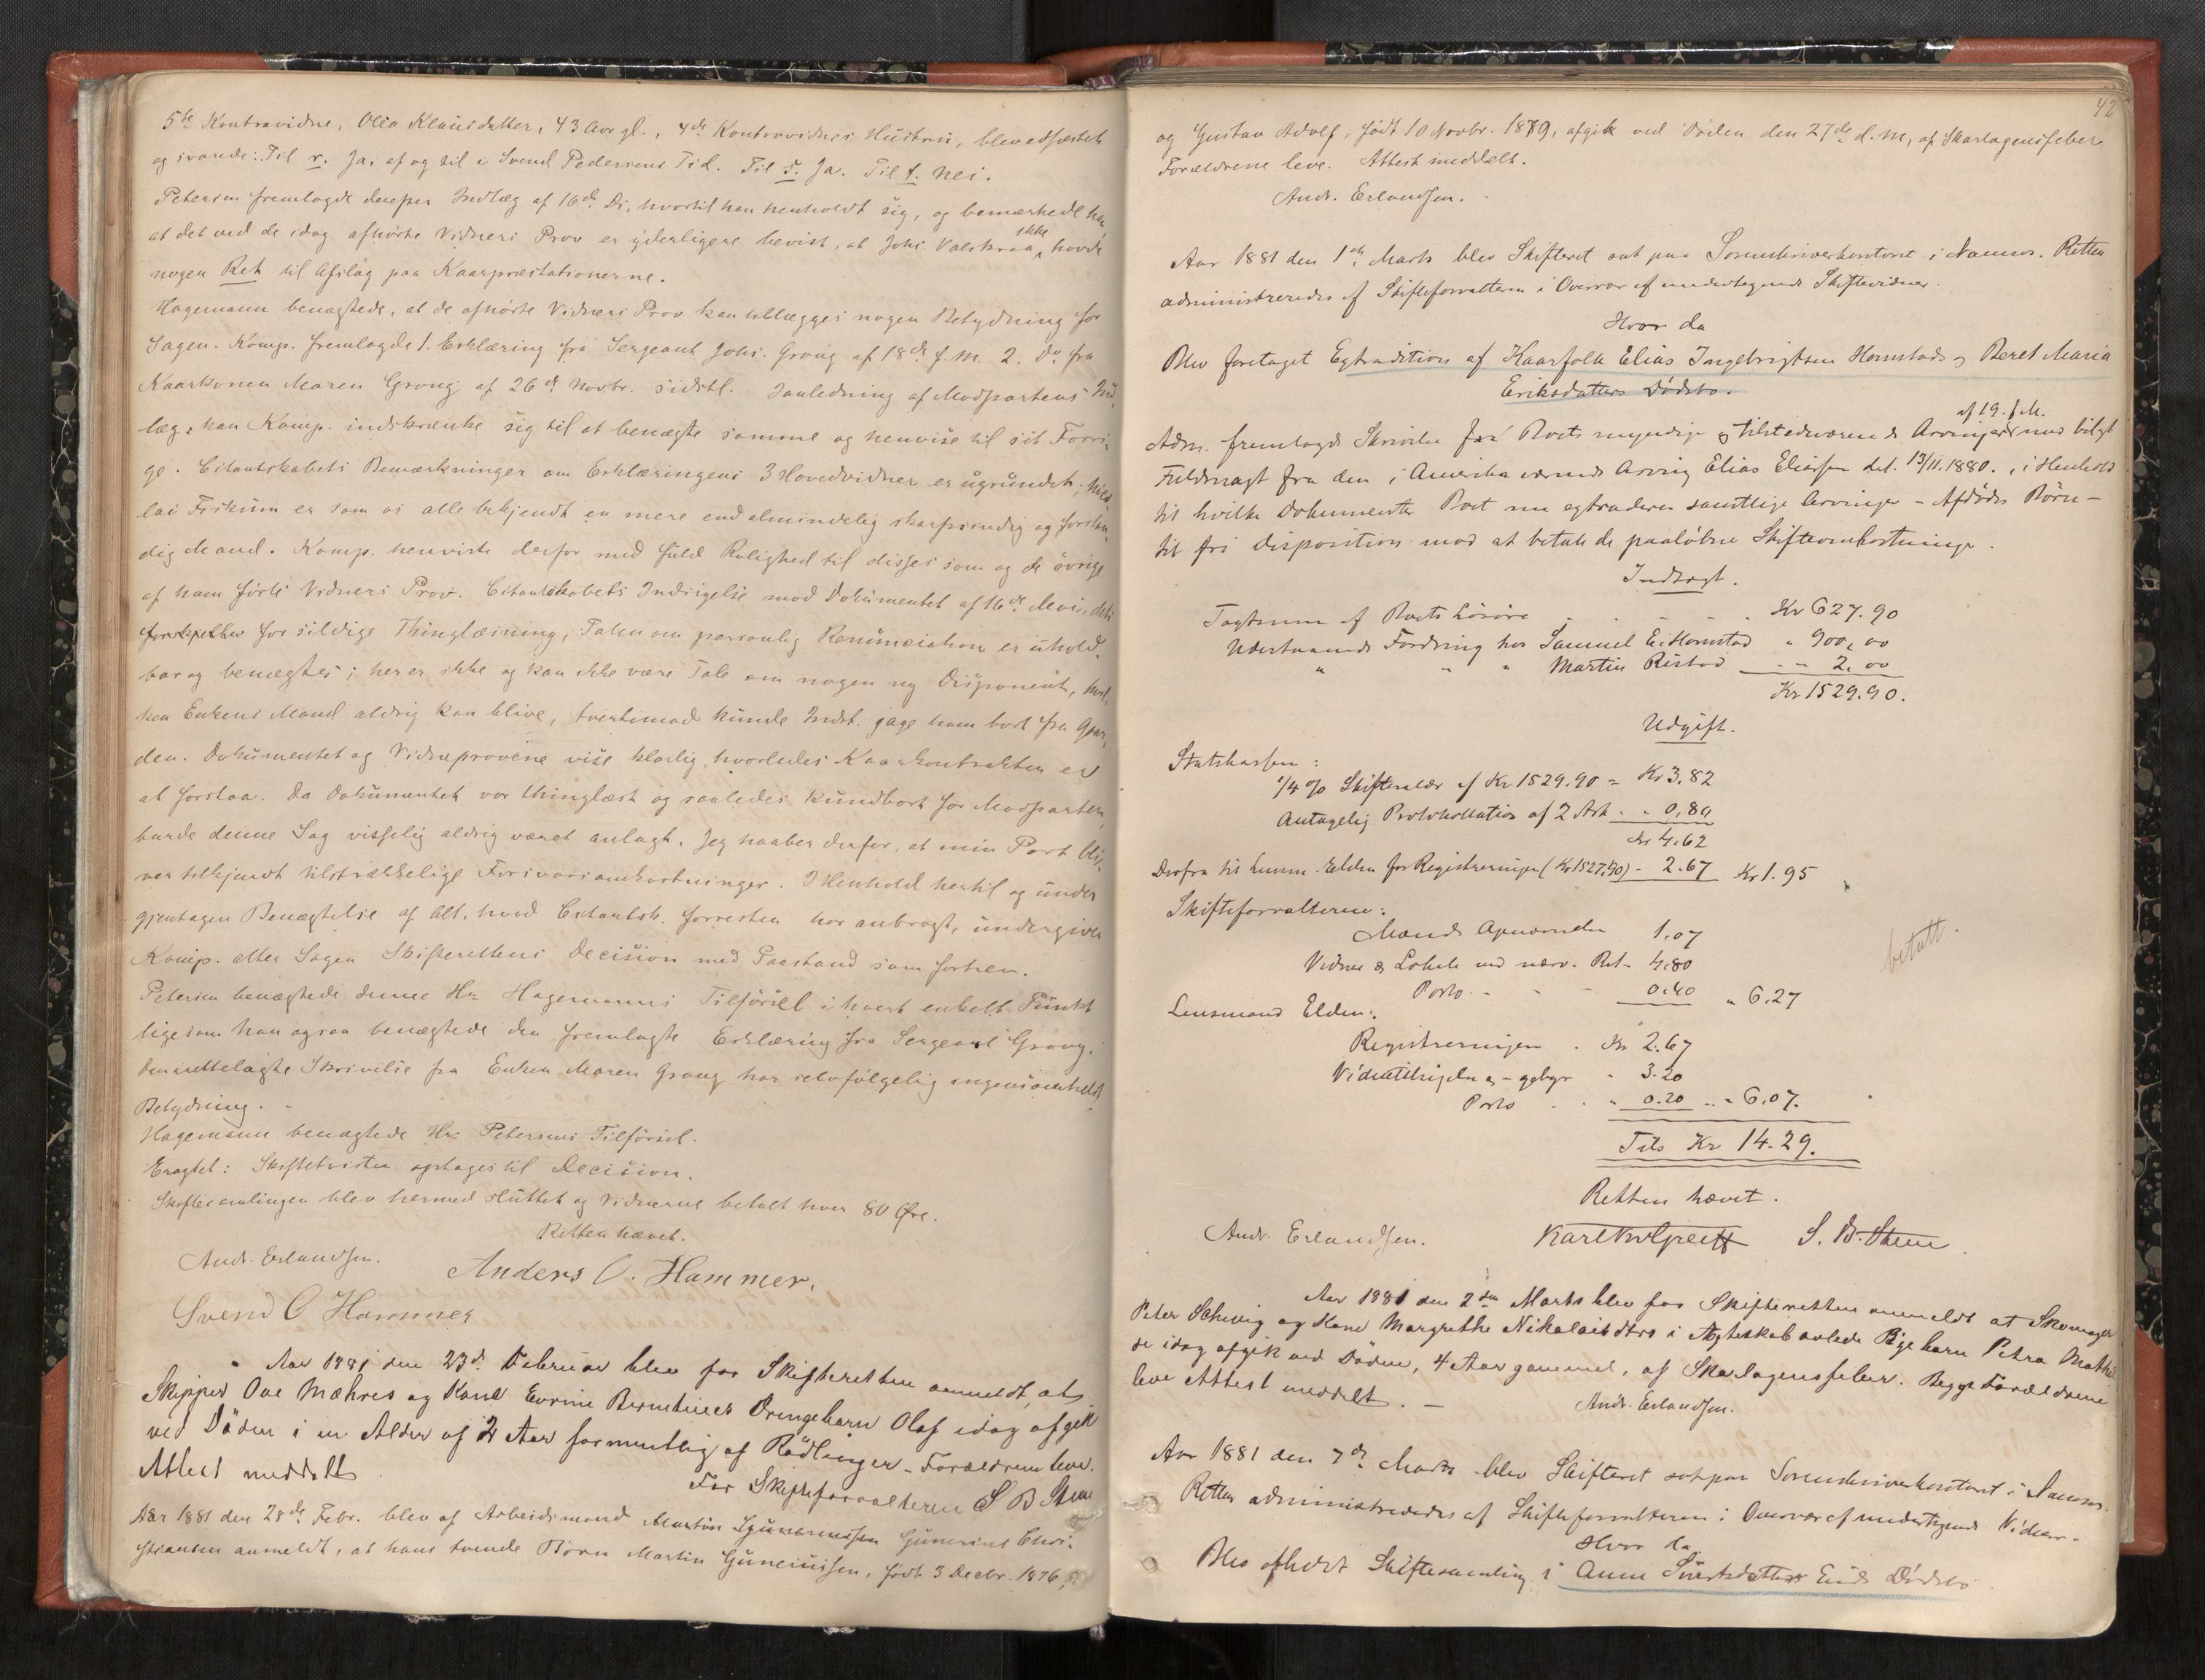 5te Kontravidne, Olea Klausdatter, 43 Aar gl., 4de Kontravidnes Hustru, blev edfæstet
og svarede: Til r. Ja, af og til i Svend Pedersens Tid. Til s. Ja. Til t. Nei.
Petersen fremlagde derpaa Indlæg af 16de Ds, hvortil han henholdt sig, og bemærkede han,
at det ved de idag afhørte Vidners Prov er yderligere bevist, at Johs. Valskraa ikke havde
nogen Ret til Afslag paa Kaarpræstationerne.
Hagemann benægtede, at de afhørte Vidners Prov kan tillægges nogen Betydning for
Sagen. Komp. fremlagde 1. Erklæring fra Sergeant Johs. Grong af 18de f. M. 2. Do fra
Kaarkonen Maren Grong af 26de Novbr. sidstl. I Anledning af Modpartens Ind-
læg kan Komp. indskrænke sig til at benægte samme og henvise til sit Forri-
ge. Citantskabets Bemærkninger om Erklæringens 3 Hovedvidner er ugrundet; Nico-
lai Fiskum er som os alle bekjendt en mere end almindelig skarpsindig og forstan-
dig Mand. Komp. henviste derfor med fuld Rolighed til disses som og de øvrige
af ham førte Vidners Prov. Citantskabets Indsigelse mod Dokumentet af 16de
for sildige Thinglæsning, Talen om personlig Renunciation er uhold-
bar og benægtes; her er ikke og kan ikke være Tale om nogen ny Disponent, hvil-
ken Enkens Mand aldrig kan blive, tvertimod kunde Indst. jage ham bort fra Gaar-
den. Dokumentet og Vidneprovene vise klarlig, hvorledes Kaarkontrakten er
at forstaa. Da Dokumentet var thinglæst og saaledes kundbart for Modparten,
burde denne Sag visselig aldrig været anlagt. Jeg haaber derfor, at min Part bli-
ver tilkjendt tilstrækkelige Forsvarsomkostninger. I Henhold hertil og under
gjentagen Benægtelse af Alt, hvad Citantsk. forresten har anbragt, undergiver
Komp. atter Sagen Skifterettens Decision med Paastand som førhen.
Petersen benægtede denne Hr. Hagemanns Tilførsel i hvert enkelt Punkt
ligesom han ogsaa benægtede den fremlagte Erklæring fra Sergeant Grong.
Den irettelagte Skrivelse fra Enken Maren Grong har selvfølgelig ingensomhelst
Betydning. -
Hagemann benægtede Hr. Petersens Tilførsel.
Eragtet: Skiftetvisten optages til Decision.
Skiftesamlingen blev hermed sluttet og Vidnerne betalt hver 80 Øre.
Retten hævet.
Andr. Erlandsen. Anders O. Hammer.
Svend O Hammer
Aar 1881 den 23de Februar blev for Skifteretten anmeldt, at
Skipper Ove Mæhres og Kone Evrine Berntines Drengebarn Olaf idag afgik
ved Døden i en Alder af 2 Aar formentlig af Rødlinger - Forældrene leve.
Attest meddelt
For Skifteforvalteren S B Stene
Aar 1881 den 28de Febr. blev af Arbeidsmand Martin Gunerius Chri-
stiansen anmeldt, at hans tvende Børn Martin Guneriussen, født 3 Decbr. 1876,
42
og Gustav Adolf, født 10 Novbr. 1879, afgik ved Døden den 27de d. M, af Skarlagensfeber
Forældrene leve. Attest meddelt.
Andr. Erlandsen.
Aar 1881 den 1ste Marts blev Skifteret sat paa Sorenskriverkontoret i Namsos. Retten
administreredes af Skifteforvalteren i Overvær af undertegnede Skiftevidner.
Hvor da
Blev foretaget Extradition af Kaarfolk Elias Ingebrigtsen Homstads og Beret Maria
Eriksdatters Dødsbo.
af 19. f. M.
Adm. fremlagde Skrivelse fra Boets myndige og tilstedværende Arvinger med bilagt
Fuldmagt fra den i Amerika værende Arving Elias Eliassen dat. 13/11. 1880., i Henhold
til hvilke Dokumenter Boet nu extraderes samtlige Arvinger - Afdødes Børn -
til fri Disposition mod at betale de paaløbne Skifteomkostninger.
Indtægt.
Taxtsum af Boets Løsøre . . . . Kr 627.90
Udestaaende Fordring hos Samuel E. Homstad " 900,00
" " " Martin Ristad - " 2.00
Kr 1529.90.
Udgift.
Statskassen:
1/4 % Skifteskat af Kr 1529.90 = Kr 3.82
Antagelig Protokollation af 2 Ark - " 0,80
Kr 4.62
Derfra til Lensm. Elden for Registreringen (Kr 1527,90) - 2.67 Kr 1.95
Skifteforvalteren:
1.07
Vidner & Lokale ved nærv. Ret - 4.80
Porto - - - 0.40 " 6.27
betalt.
Lensmand Elden:
Registreringen . Kr 2.67
Vidnetilsigelse & - gebyr " 3.20
Porto . . " 0.20 .. " 6.07.
Tils Kr 14.29.
Retten hævet.
Andr. Erlandsen. S. B. Stene.
Aar 1881 den 2den Marts blev for Skifteretten anmeldt at Skomager
Peter Schevig og Kone Margrethe Nikolaisdtrs i Ægteskab avlede Pigebarn Petra Mathil-
de idag afgik ved Døden, 4 Aar gammel, af Skarlagensfeber. Begge Forældrene
leve Attest meddelt. -
Andr. Erlandsen.
Aar 1881 den 7de Marts blev Skifteret sat paa Sorenskriverkontoret i Namsos.
Retten administreredes af Skifteforvalteren i Overvær af undertegnede Vidner.
Hvor da
Blev afholdt Skiftesamling i Anne Sivertsdatter Dødsbo